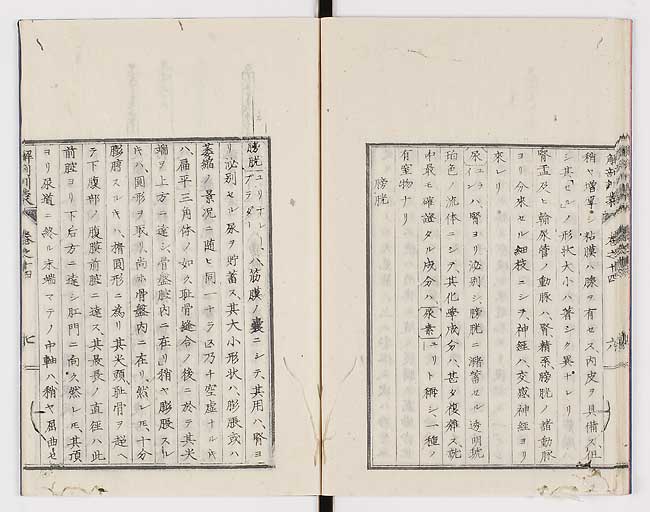 稍ヤ増單シ粘膜ハ腺ヲ有セス内皮ヲ具備ス但
シ其「ゼ」ノ形状大小ハ著シク異ナレリ
腎盂及ヒ輸尿管ノ動脈ハ腎精系膀胱ノ諸動脈
ヨリ分來セル細枝ニシテ神経ハ交感神経ヨリ
來レリ
尿ハ腎ヨリ泌別シ膀胱ニ瀦蓄セル透明琥
珀色ノ流体ニシテ其化學成分ハ甚タ複雑ス就
中最モ確證タル成分ハ尿素ユリト稱シ一種ノ
有窒物ナリ
膀胱
解剖訓蒙 巻之十四 六
膀胱ハ筋膜ノ嚢ニシテ其用ハ腎ヨ
リ泌別セル尿ヲ貯蓄ス其大小形状ハ膨脹或ハ
萎縮ノ景况ニ随ヒ同一ナラス乃チ空虚ナル片
ハ扁平三角体ノ如ク耻骨縫合ノ後ニ於テ其尖
端ヲ上方ニ達シ骨盤腔内ニ在リ稍ヤ膨脹スル
片ハ圓形ヲ取リ尚ホ骨盤内ニ在リ然レ𪜈十分
膨脹スル片ハ楕圓形ニ為リ其尖頭耻骨ヲ起ヘ
テ下腹部ノ腹膜前腔ニ達ス其最長ノ直径ハ此
前腔ヨリ下后方ニ達シ肛門ニ向久然レ𪜈其頂
ヨリ尿道ニ終ル末端マテノ中軸ハ稍ヤ屈曲セ
解剖訓蒙 巻之十四 七